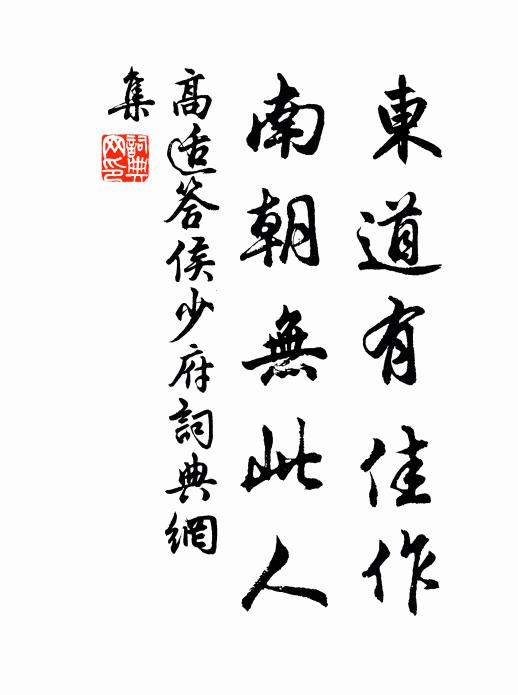 東道有佳作
南朝無此人
高适答侯少府詞典網
集
詞典网印